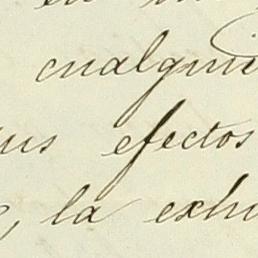 en
cualqui
us efectos
, la exhi